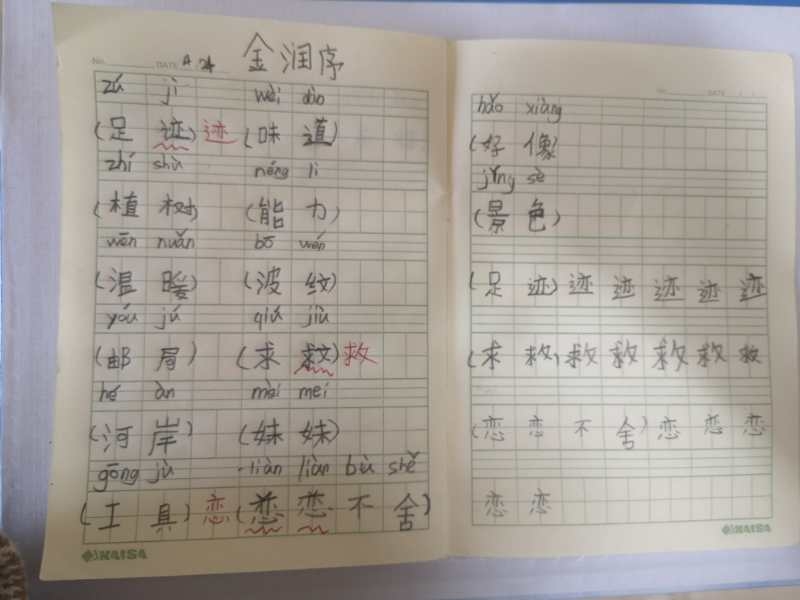 金润序
No. DATE
zú jì wèi dào
(足 迹) 迹 (味 道)
zhí shù néng lì
(植 树) (能 力)
wēn nuǎn bō wén
(温 暖) (波 纹)
yóu jú qiú jiù
(邮 局) (求 救) 救
hé àn mèi mei
(河 岸) (妹 妹)
gōng jù liàn liàn bù shě
(工 具) 恋 (恋 恋 不 舍)
KAISA
No. DATE
hǎo xiàng
(好 像)
jǐng sè
(景 色)
(足 迹) 迹 迹 迹 迹 迹
(求 救) 救 救 救 救 救
(恋 恋 不 舍) 恋 恋 恋
恋 恋
KAISA